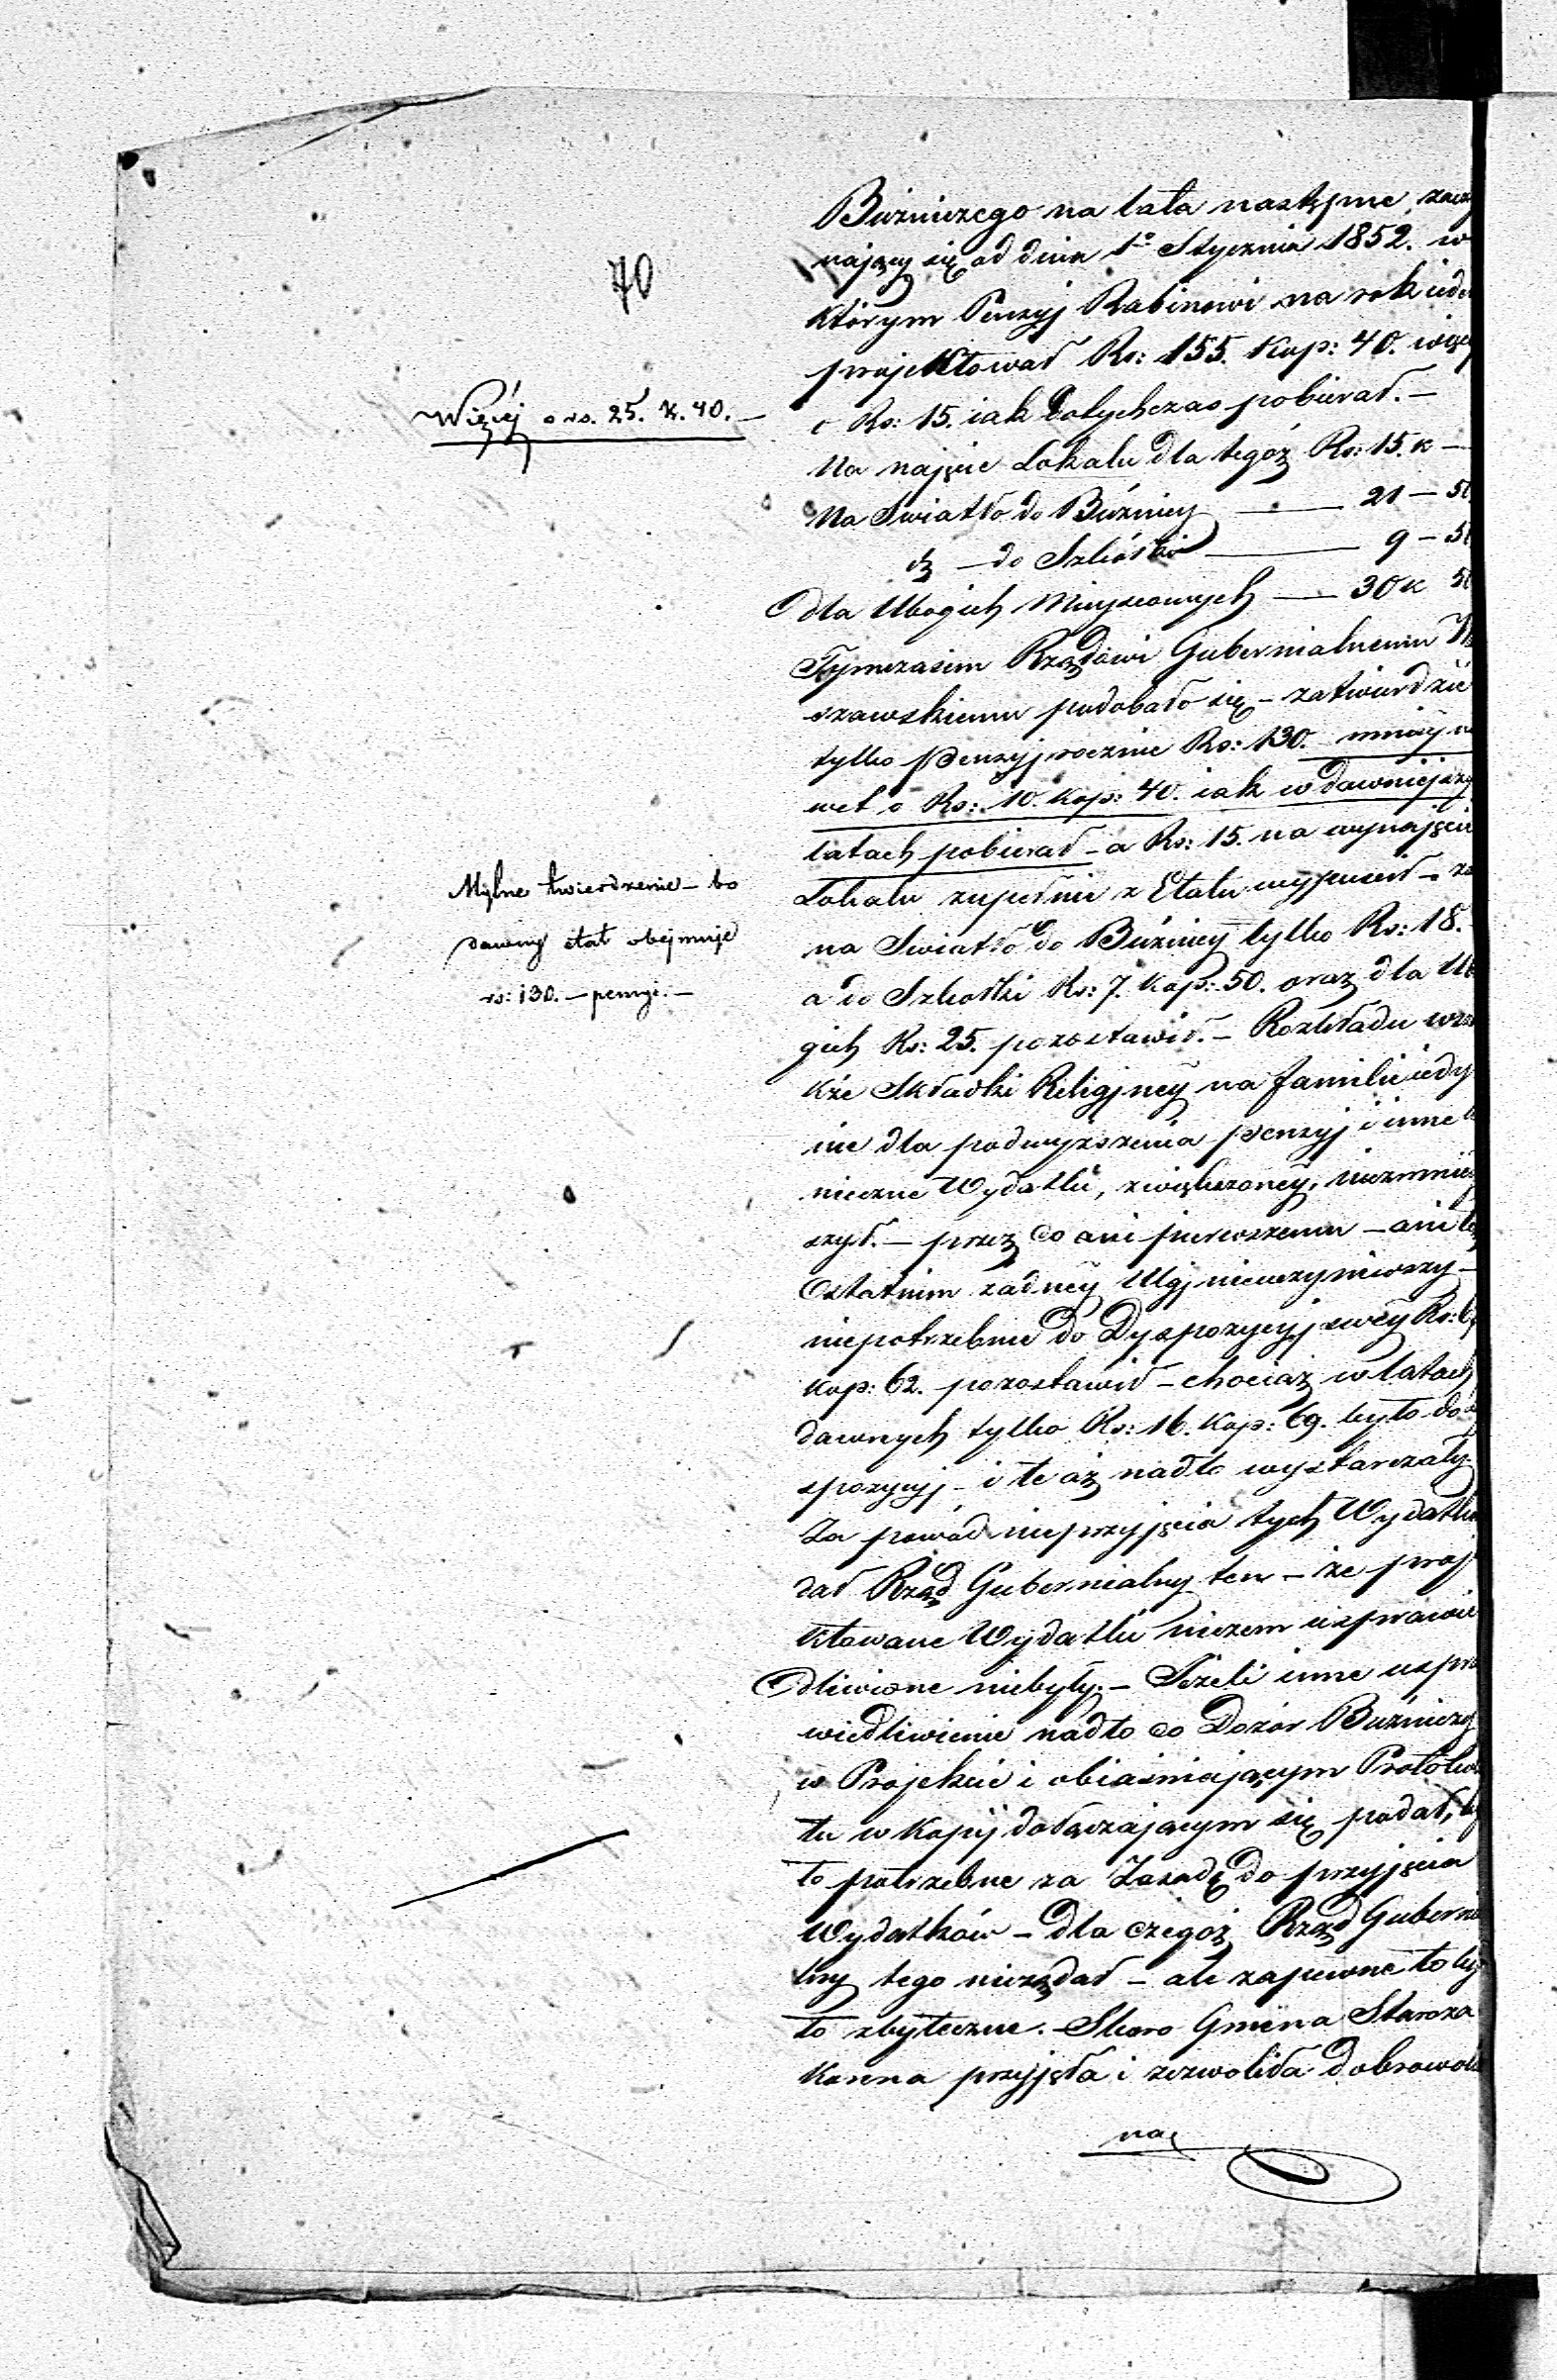 70
Buźniczego na lata następne, zaczy
nający się od dnia 1º Stycznia 1852. w
którym Penzyj Rabinowi na rok ieden
projektował Rs: 155. Kop: 40. więcy
o Rs: 15. iak dotychczas pobierał. –
Więcéj o rs. 25. k. 40. –
Na najęcie Lokalu dla tegoż Rs: 15. k –
Na Swiatło do Buźnicy — 21 – 50
dº — do Szkółki — 9 – 50
dla Ubogich Mieyscowych — 30 k 50
Tymczasem Rządowi Gubernialnemu War
szawskiemu podobało się – zatwierdzić
tylko penzyj rocznie Rs: 130. mniey na
wet o Rs: 10. kop: 40. iak w dawniejszy
latach pobierał – a Rs: 15. na wynajęcie
Lokalu zupełnie z Etatu wypuscił – za
Mylne twierdzenie – bo
dawny etat obejmuje
rs: 130. – pensyi. –
na Swiatło do Buźnicy tylko Rs: 18. –
a do Szkołki Rs: 7. Kop: 50. oraz dla Ubo
gich Rs: 25. pozostawił. – Rozkładu wsza
kże Składki Religijney na familie iedy
nie dla podwyższenia penzyj i inne
nieczne Wydatki, zwiększoney, niezmniey
szył. – przez co ani pierwszemu – ani też
Ostatnim zadney Ulgi nieuczyniwszy –
niepotrzebnie do Dyspozycyj swey Rs:
kop: 62. pozostawił – chociaż w latach
dawnych tylko Rs: 16. Kop: 69. było do dy
spozycyj – i te aż nadto wystarczały.
Za powód nieprzyjęcia tych Wydatków
dał Rząd Gubernialny ten – że proje
ktowane Wydatki niczem usprawie
dliwione niebyły. – Jeżeli inne uspra
wiedliwienie nadto co Dozór Buźniczy
w Projekcie i obiaśniającym Protokule
tu w Kopij dołączającym się podał, by
ło potrzebne za Zasadę do przyjęcia
Wydatków – dla czegoż Rząd Gubernia
lny tego nieżądał – ale zapewne to by
ło zbyteczne. – Skoro Gmina Staroza
konna przyjęła i zezwoliła dobrowol
na